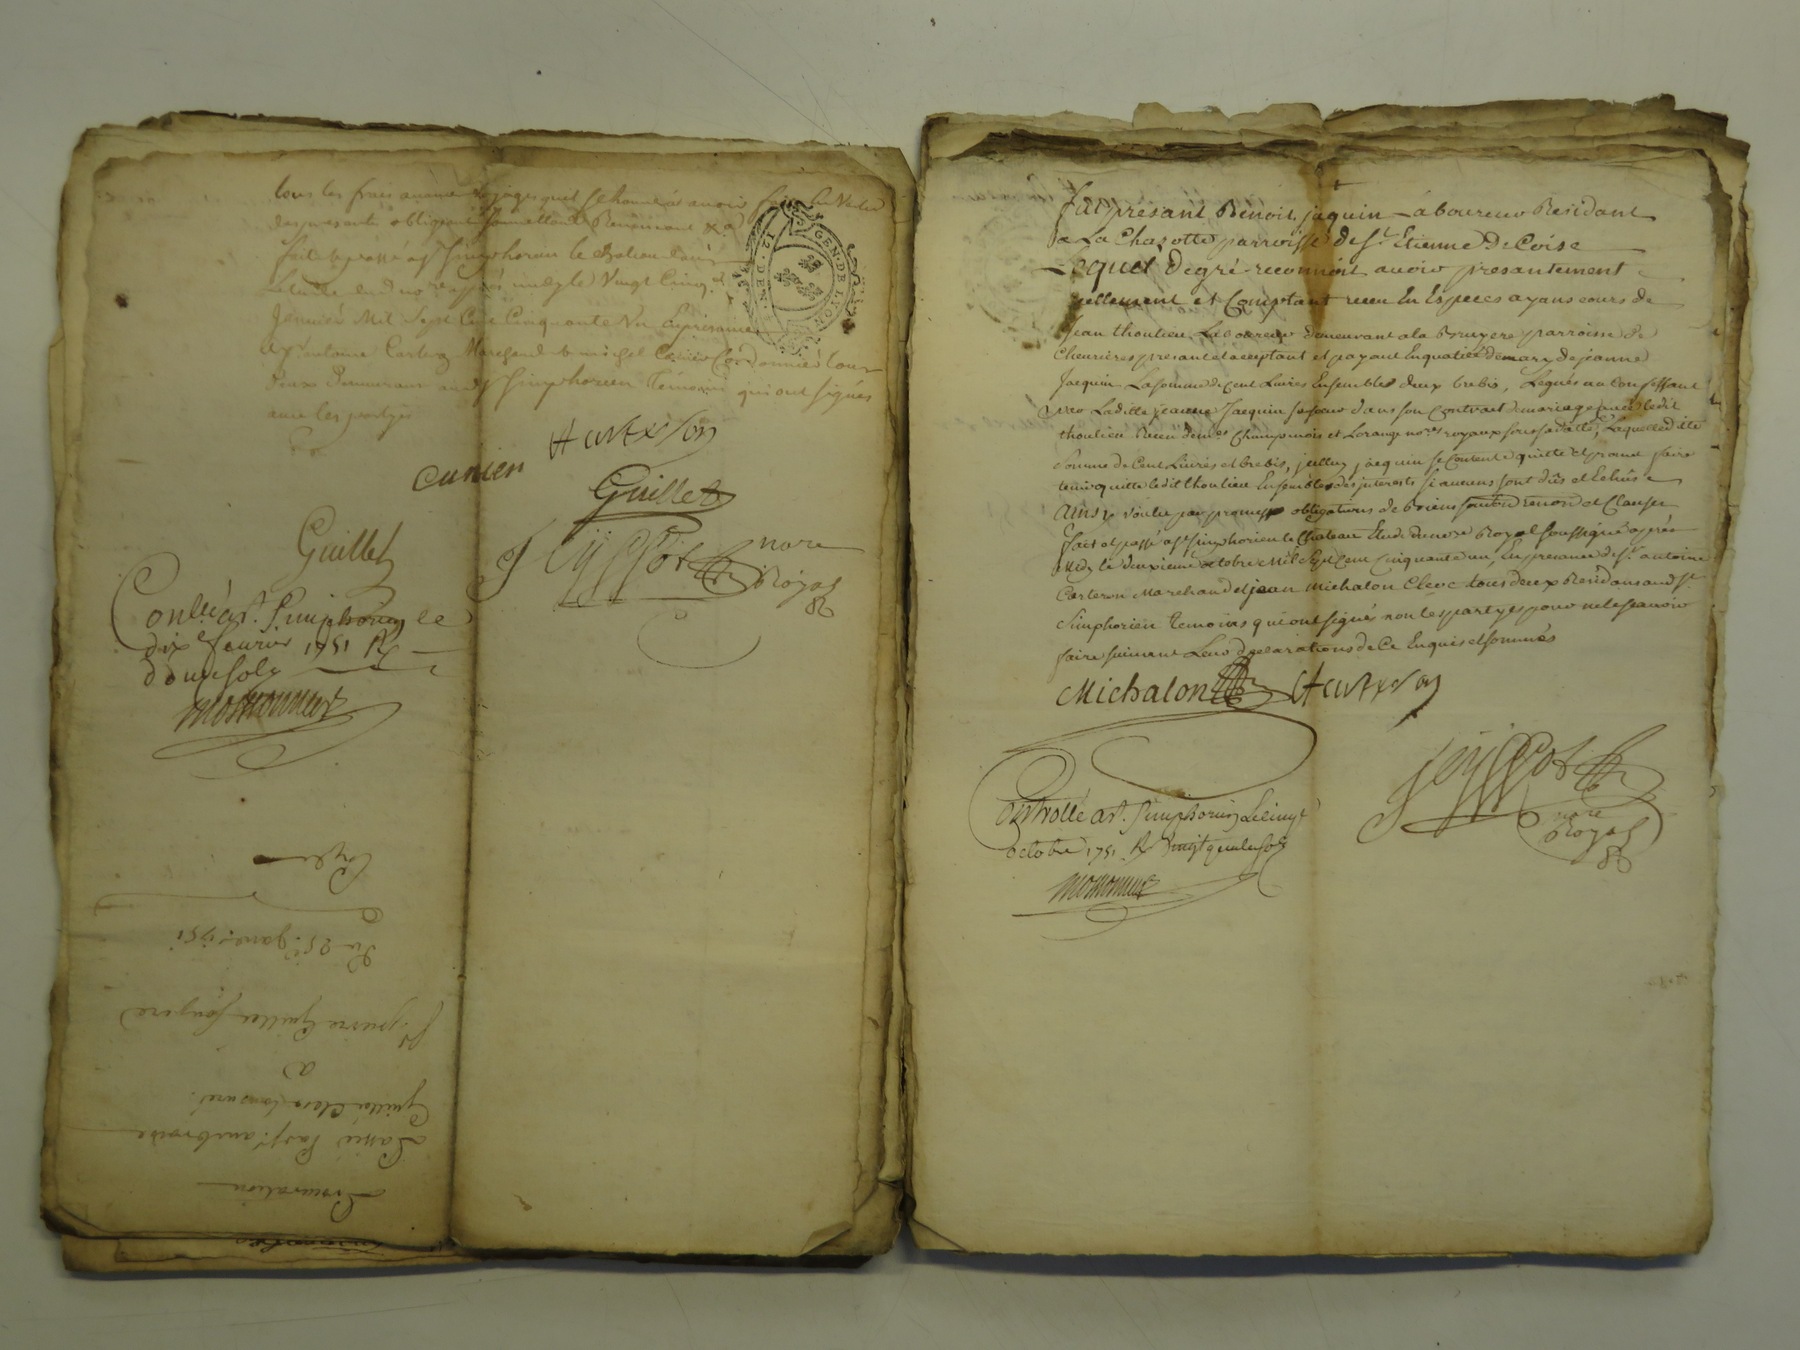 tous les frais avance voyages quil se trouvera avoir fait En Vertu
des presente obligeant soumettant Renoncant &a
fait et passé a St Simphorien le Chateau
le Vingt Cinq
Janvier Mil Sept Cent Cinquante Un En présance
de Sr antoine Carteron Marchand & michel Cordonnier tous
deux Demeurant audt St Simphorien témoins qui ont signés
avec les partyes
GEN. DE LYON
12. DEN.
Guillet
Guillet
nore
Royal
Conllé a St. Simphorien le
dix feurier 1751 R
douze sols
Du 25e. Janer. 1751
Sr pierre Guillet
a
Guillet Clerc tonsuré.
Passée par Sr. ambroise
Procuration
Fut presant Benoit jaquin Laboureur Residant
a La Chazotte parroisse de St. Etienne De Coise
Lequel de gré reconnoit avoir presantement
reellement et Comptant receu En Especes ayans cours de
Jean thoulieu Laboureur demeurant a la Bruyere parroisse de
Chevrieres presant et acceptant et payant En qualité de mary de jeanne
Jacquin La somme de Cent Livres Ensembles deux brebis, Legués au Confessant
par Laditte jeanne Jacquin sa soeur dans son Contrat de mariage avec ledit
thoulieu Receu dem.es Champinois et Lorange nores royaux sous sa datte, Laquelle ditte
Somme de Cent Livres et brebis, jcelluy jaquin se Contente quitte et promet faire
tenir quitte ledit thoulieu Ensembles des jnterests si aucuns sont dûs et Echûs
Ainsy voulu par promesse obligations de biens renon et Clauses
fait et passé a St Simphorien le Chateau Etude du nore Royal soussigné apres
Midy le deuxieme octobre Mil Sept Cent Cinquante un, En presance de Sr. antoine
Carteron Marchand et jean Michalon Clerc tous deux Residans audt St
Simphorien temoins qui ont signés non les partyes pour ne le sçavoir
faire suivant Leur declarations de Ce Enquis et sommés
Michalon
nore
Royal
Controllé a St. Simphorien Le
octobre 1751 R vingt quatre sols